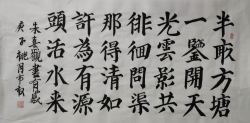 半畝方塘
一鑒開天
光雲影共
徘徊問渠
那得清如
許為有源
頭活水來
朱熹觀書有感
庚子